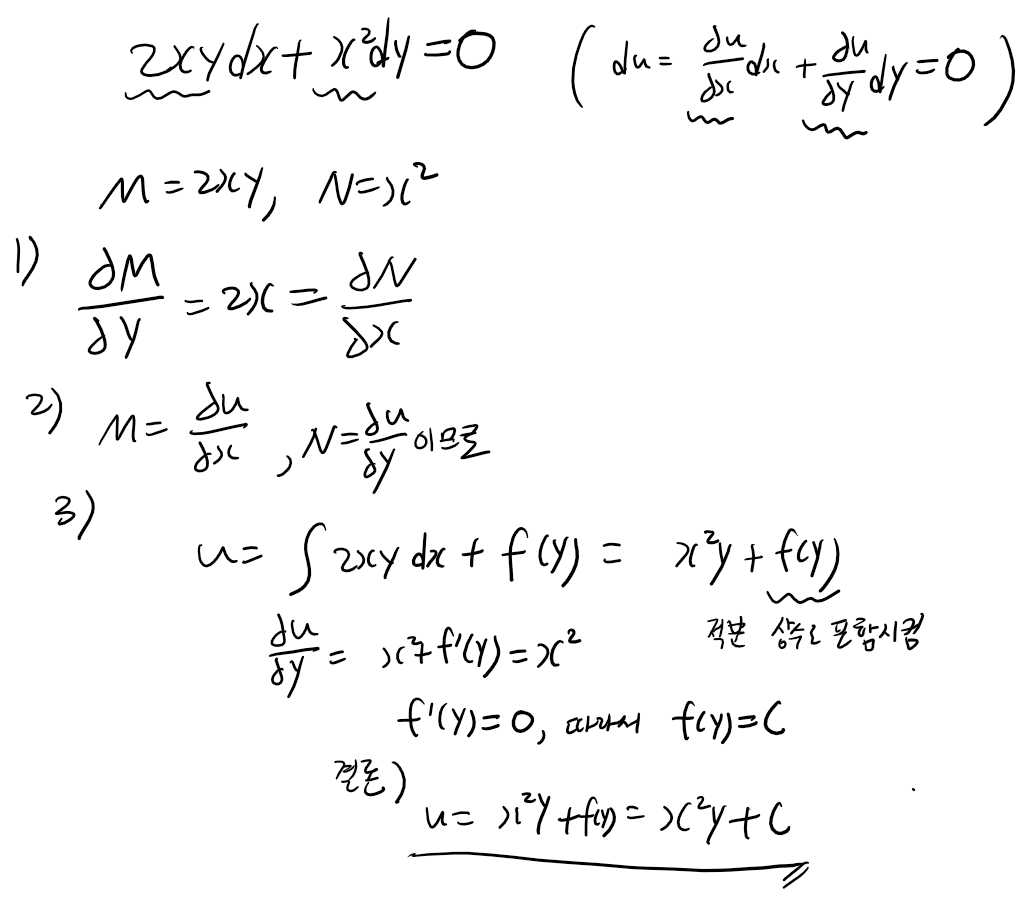 2xydx + x²dy = 0 ( du = ∂u/∂x dx + ∂u/∂y dy = 0 )
M = 2xy, N = x²
1) ∂M/∂y = 2x = ∂N/∂x
2) M = ∂u/∂x , N = ∂u/∂y 이므로
3)
u = ∫ 2xy dx + f(y) = x²y + f(y)
적분 상수도 포함시킴
∂u/∂y = x² + f'(y) = x²
f'(y) = 0, 따라서 f(y) = C
결론)
u = x²y + f(y) = x²y + C